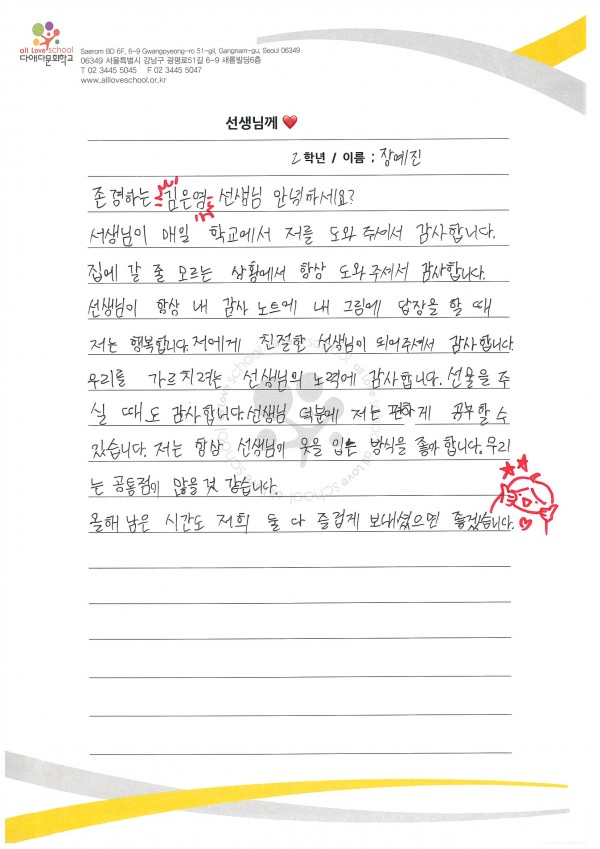 all Love school
다애다문화학교
Saerom BD 6F, 6-9 Gwangpyeong-ro 51-gil, Gangnam-gu, Seoul 06349
06349 서울특별시 강남구 광평로51길 6-9 새롬빌딩6층
T 02 3445 5045 F 02 3445 5047
www.allloveschool.or.kr
선생님께 ❤
2 학년 / 이름 : 장예진
존경하는 김은염 선생님 안녕하세요?
서생님이 매일 학교에서 저를 도와 주셔서 감사합니다.
집에 갈 줄 모르는 상황에서 항상 도와주셔서 감사합니다.
선생님이 항상 내 감사 노트에 내 그림에 답장을 할 때
저는 행복합니다. 저에게 친절한 선생님이 되어주셔서 감사합니다.
우리를 가르치려는 선생님의 노력에 감사합니다. 선물을 주
실 때도 감사합니다. 선생님 덕분에 저는 편하게 공부할 수
있습니다. 저는 항상 선생님이 옷을 입는 방식을 좋아합니다. 우리
는 공통점이 많을 것 같습니다.
올해 남은 시간도 저희 둘 다 즐겁게 보내셨으면 좋겠습니다.
all Love school